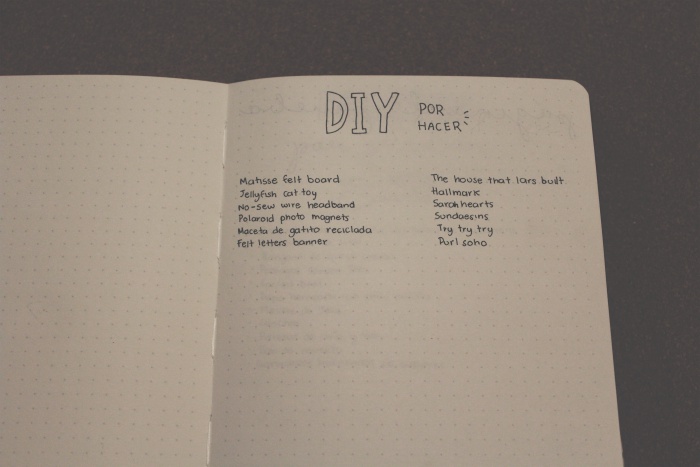 DIY POR
HACER
Matisse felt board
Jellyfish cat toy
No-sew wire headband
Polaroid photo magnets
Maceta de gatito reciclada
Felt letters banner
The house that lars built.
Hallmark
Sarah hearts
Sundaesins
Try try try
Purl soho